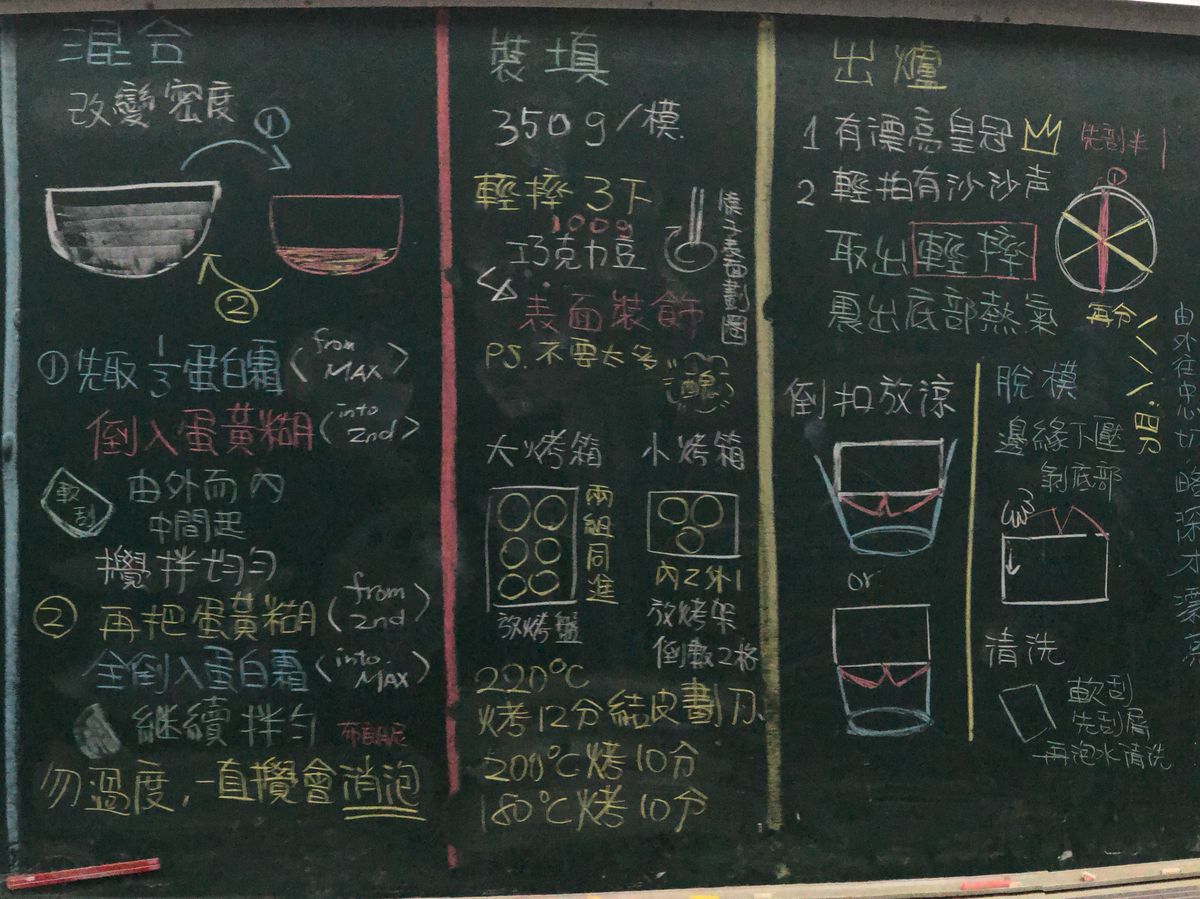 混合
改變密度
①
②
①先取1/3蛋白霜(from MAX)
倒入蛋黃糊(into 2nd)
軟刮
由外而內
中間起
攪拌均勻
②再把蛋黃糊(from 2nd)
全倒入蛋白霜(into MAX)
繼續拌勻
勿過度,一直攪會消泡
裝填
350g/模
輕摔3下
100g
巧克力豆
表面裝飾
表面劃圈
PS.不要太多
醜
大烤箱
兩組同進
放烤盤
小烤箱
內2外1
放烤架
倒數2格
220°C
烤12分結皮劃刀
200°C烤10分
180°C烤10分
出爐
1 有標高皇冠
2 輕拍有沙沙声
取出輕摔
裏出底部熱氣
先割半
①
再分
四刀
由外往忠切
倒扣放涼
or
脫模
邊緣下壓
剝底部
清洗
軟刮
先刮屑
再泡水清洗